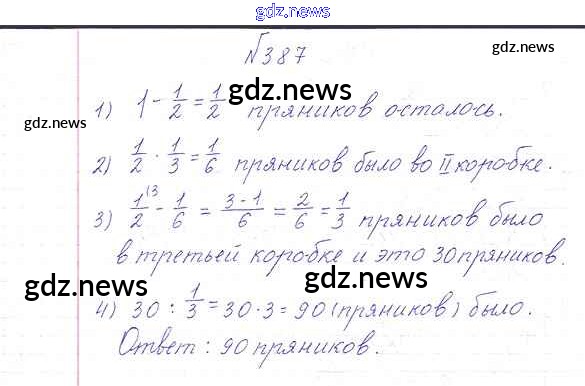 gdz.news
№387
gdz.news
1) 1 - 1/2 = 1/2 пряников осталось.
gdz.news
gdz.news
2) 1/2 · 1/3 = 1/6 пряников было во II коробке.
3) 1/2 (3 - 1/6 = 3-1/6 = 2/6 = 1/3 пряников было
в третьей коробке и это 30 пряников.
gdz.news
gdz.news
gdz.news
4) 30 : 1/3 = 30 · 3 = 90 (пряников) было.
Ответ: 90 пряников.